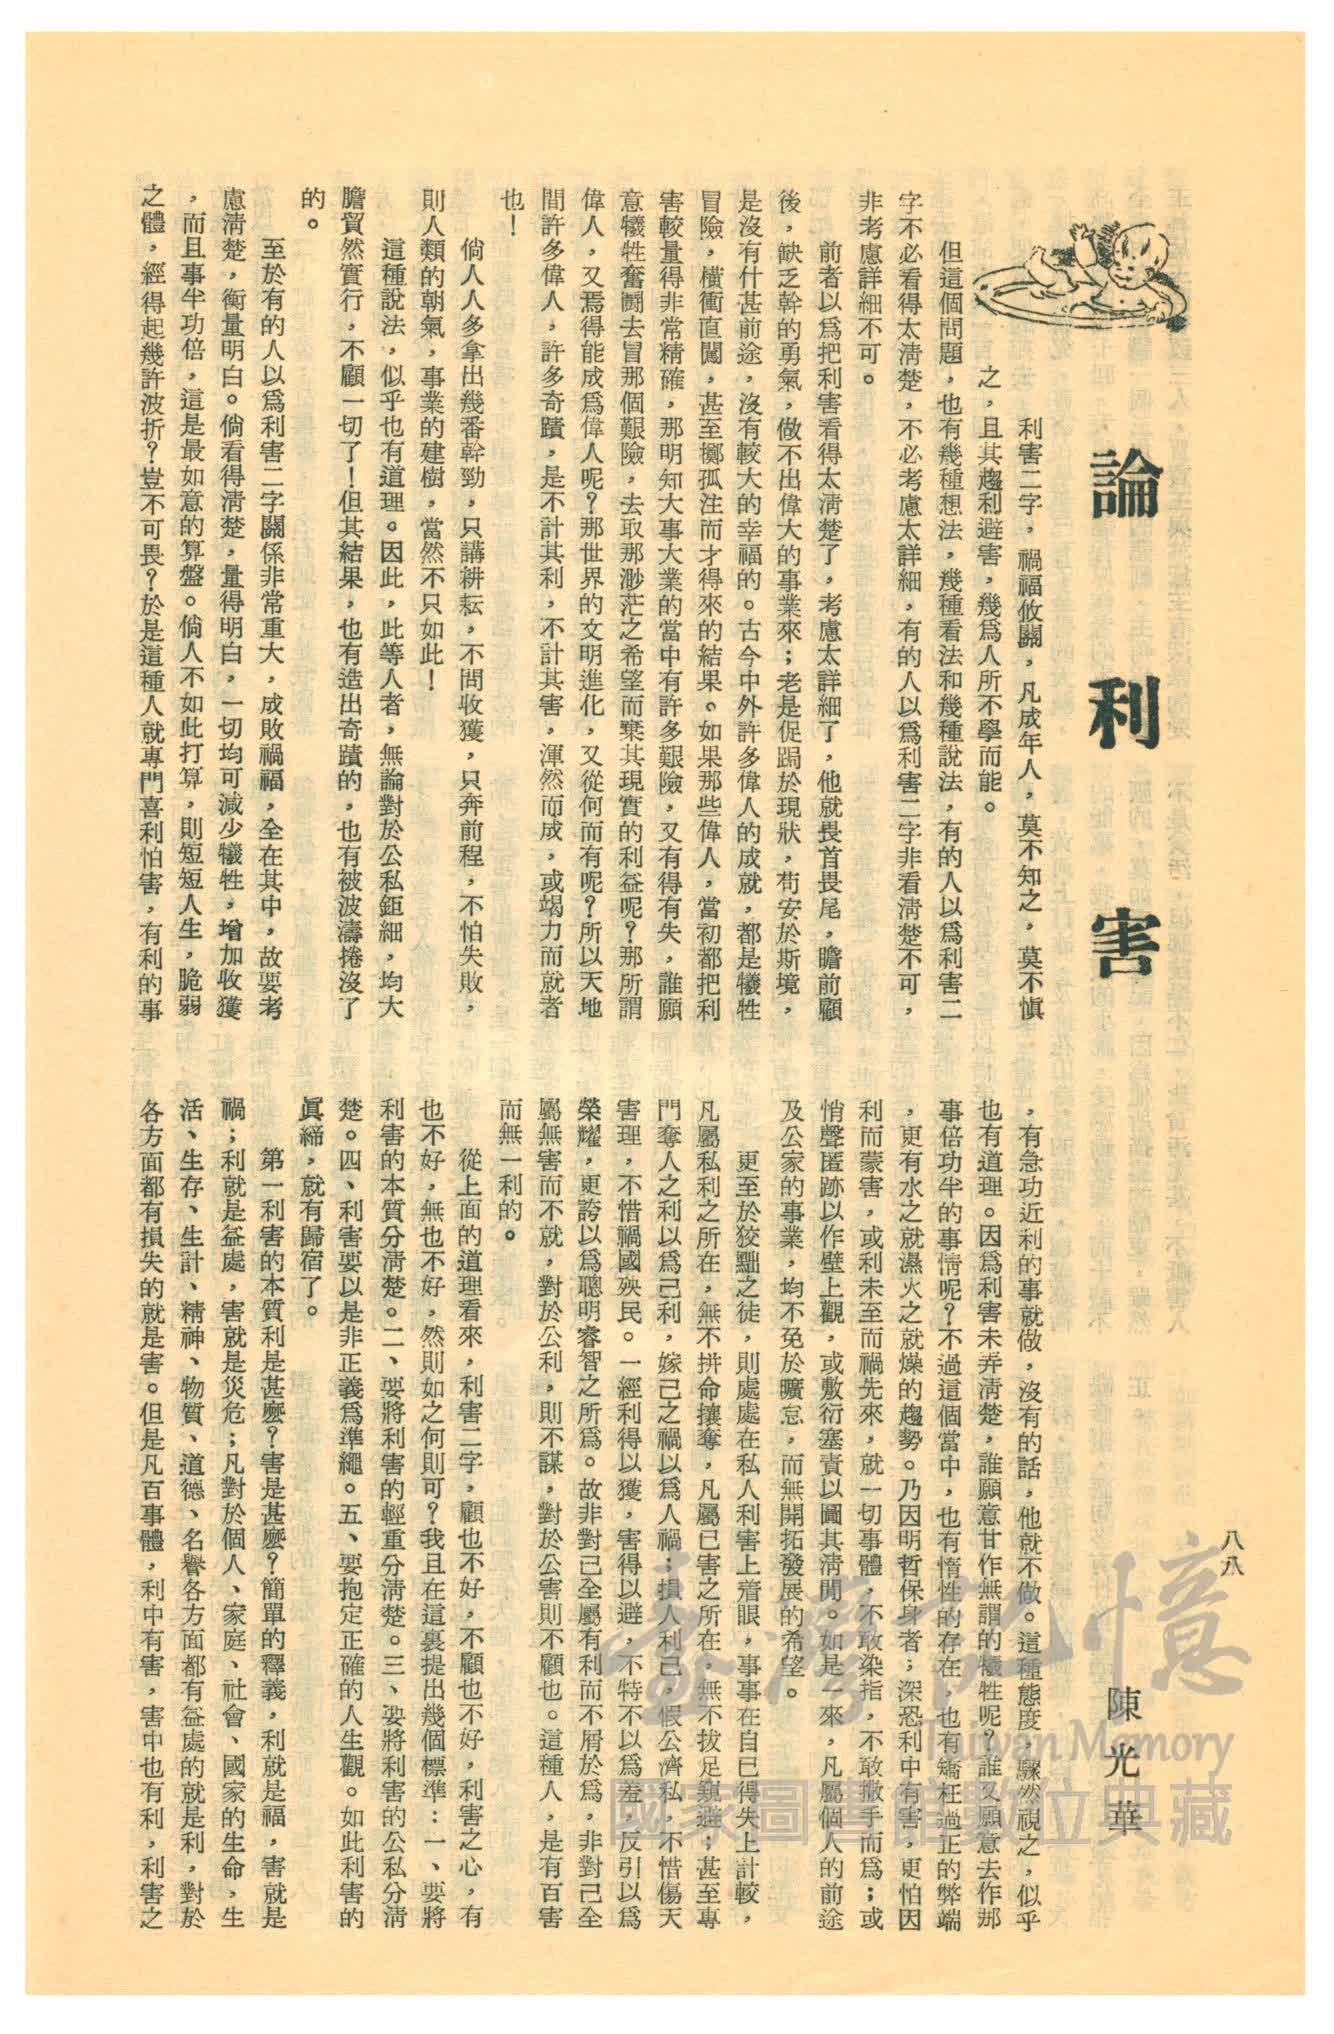 八八
論利害
陳光華
利害二字，禍福攸關，凡成年人，莫不知之，莫不慎
之，且其趨利避害，幾爲人所不學而能。
但這個問題，也有幾種想法，幾種看法和幾種說法，有的人以爲利害二
字不必看得太淸楚，不必考慮太詳細，有的人以爲利害二字非看淸楚不可，
非考慮詳細不可。
前者以爲把利害看得太淸楚了，考慮太詳細了，他就畏首畏尾，瞻前顧
後，缺乏幹的勇氣，做不出偉大的事業來；老是促跼於現狀，苟安於斯境，
是沒有什甚前途，沒有較大的幸福的。古今中外許多偉人的成就，都是犧牲
冒險，橫衝直闖，甚至擲孤注而才得來的結果。如果那些偉人，當初都把利
害較量得非常精確，那明知大事大業的當中有許多艱險，又有得有失，誰願
意犧牲奮鬬去冒那個艱險，去取那渺茫之希望而棄其現實的利益呢？那所謂
偉人，又焉得能成爲偉人呢？那世界的文明進化，又從何而有呢？所以天地
間許多偉人，許多奇蹟，是不計其利，不計其害，渾然而成，或竭力而就者
也！
倘人人多拿出幾番幹勁，只講耕耘，不問收獲，只奔前程，不怕失敗，
則人類的朝氣，事業的建樹，當然不只如此！
這種說法，似乎也有道理。因此，此等人者，無論對於公私鉅細，均大
膽貿然實行，不顧一切了！但其結果，也有造出奇蹟的，也有被波濤捲沒了
的。
至於有的人以爲利害二字關係非常重大，成敗禍福，全在其中，故要考
慮淸楚，衡量明白。倘看得淸楚，量得明白，一切均可減少犧牲，增加收獲
，而且事半功倍，這是最如意的算盤。倘人不如此打算，則短短人生，脆弱
之體，經得起幾許波折？豈不可畏？於是這種人就專門喜利怕害，有利的事
，有急功近利的事就做，沒有的話，他就不做。這種態度，驟然視之，似乎
也有道理。因爲利害未弄淸楚，誰願意甘作無謂的犧牲呢？誰又願意去作那
事倍功半的事情呢？不過這個當中，也有惰性的存在，也有矯枉過正的弊端
，更有水之就濕火之就燥的趨勢。乃因明哲保身者；深恐利中有害，更怕因
利而蒙害，或利未至而禍先來，就一切事體，不敢染指，不敢撒手而爲；或
悄聲匿跡以作壁上觀，或敷衍塞責以圖其淸閒。如是一來，凡屬個人的前途
及公家的事業，均不免於曠怠，而無開拓發展的希望。
更至於狡黜之徒，則處處在私人利害上着眼，事事在自已得失上計較，
凡屬私利之所在，無不拼命攘奪，凡屬已害之所在，無不拔足窺避；甚至專
門奪人之利以爲己利，嫁己之禍以爲人禍；損人利己，假公濟私，不惜傷天
害理，不惜禍國殃民。一經利得以獲，害得以避，不特不以爲羞，反引以爲
榮耀，更誇以爲聰明睿智之所爲。故非對己全屬有利而不屑於爲，非對己全
屬無害而不就，對於公利，則不謀，對於公害則不顧也。這種人，是有百害
而無一利的。
從上面的道理看來，利害二字，顧也不好，不顧也不好，利害之心，有
也不好，無也不好，然則如之何則可？我且在這裏提出幾個標準：一、要將
利害的本質分淸楚。二、要將利害的輕重分淸楚。三、要將利害的公私分淸
楚。四、利害要以是非正義爲準繩。五、要抱定正確的人生觀。如此利害的
眞締，就有歸宿了。
第一利害的本質利是甚麼？害是甚麼？簡單的釋義，利就是福，害就是
禍；利就是益處，害就是災危；凡對於個人、家庭、社會、國家的生命，生
活、生存、生計、精神、物質、道德、名譽各方面都有益處的就是利，對於
各方面都有損失的就是害。但是凡百事體，利中有害，害中也有利，利害之
臺灣記憶
Taiwan Memory
國家圖書館數位典藏